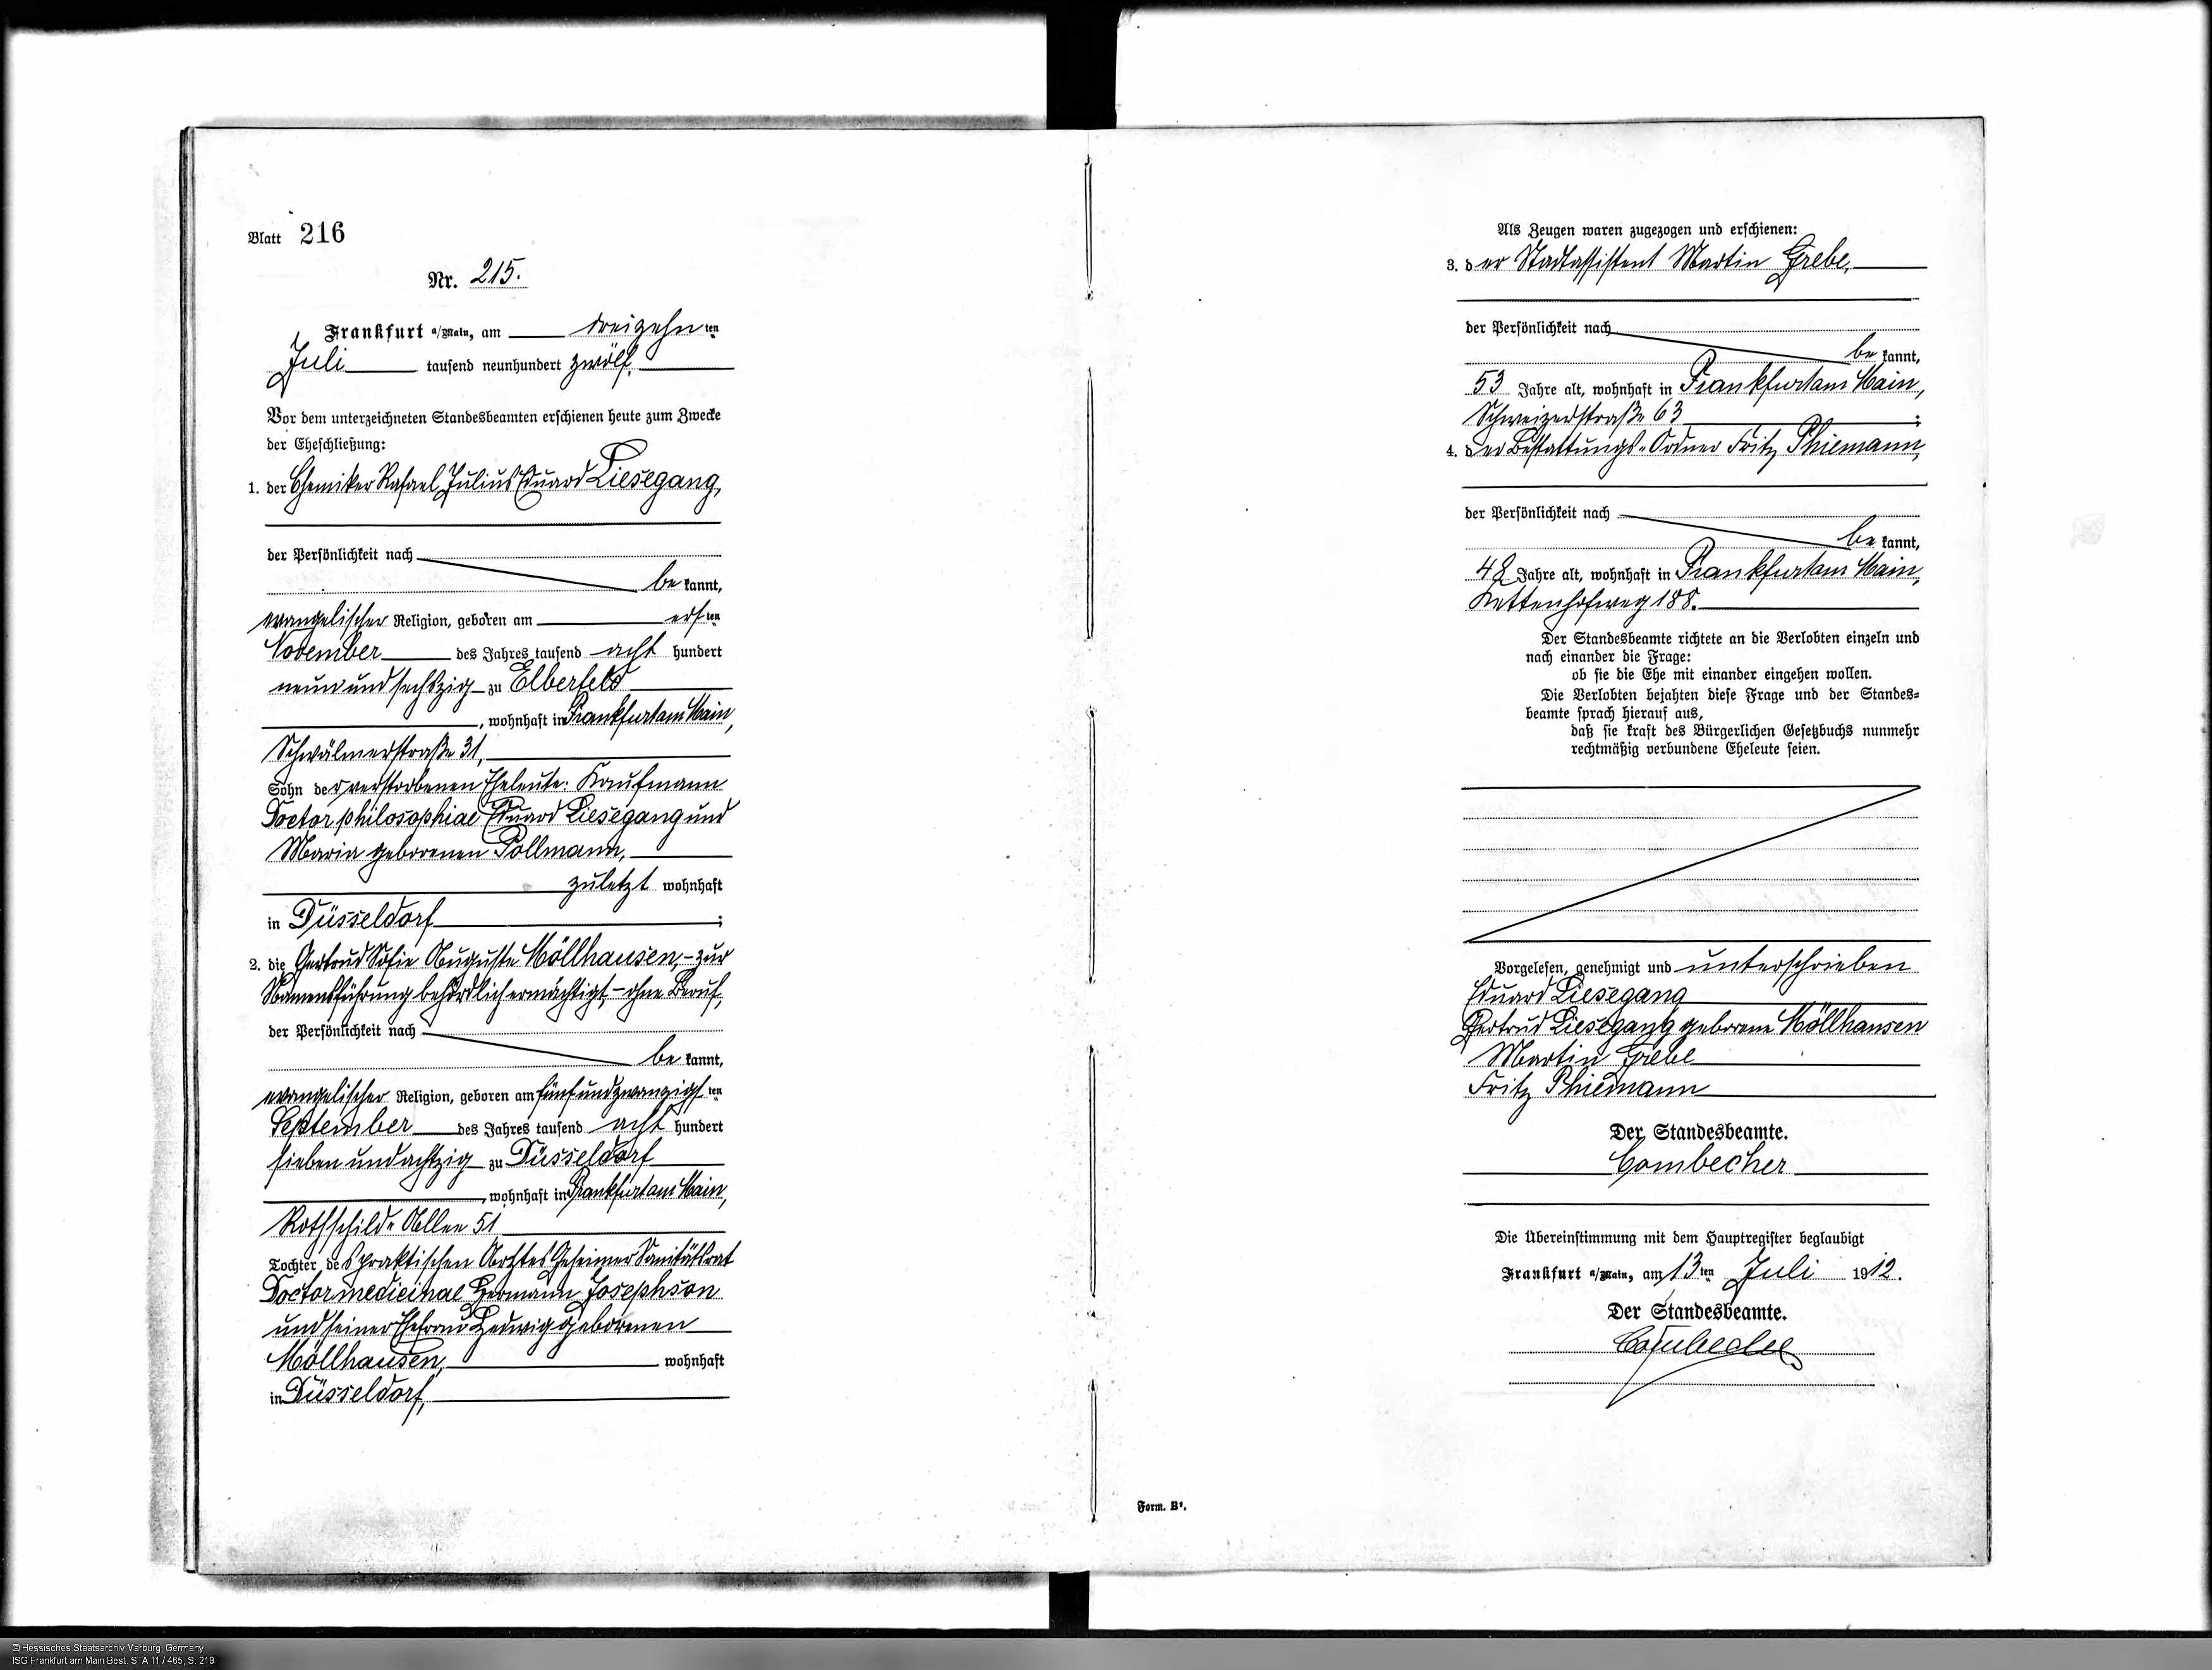 Blatt 216
Nr. 215.
Frankfurt a/Main, am dreizehn ten
Juli tausend neunhundert zwölf.
Vor dem unterzeichneten Standesbeamten erschienen heute zum Zwecke
der Eheschließung:
1. der Chemiker Rafael Julius Eduard Liesegang,
der Persönlichkeit nach
be kannt,
evangelischer Religion, geboren am ersten
November des Jahres tausend acht hundert
neun und sechszig zu Elberfeld
, wohnhaft in Frankfurt am Main,
Schwälmerstraße 31,
Sohn der verstorbenen Eheleute: Kaufmann
Doctor philosophiae Eduard Liesegang und
Maria geborenen Pollmann,
zuletzt wohnhaft
in Düsseldorf ;
2. die Gertrud Sofie Auguste Möllhausen, - zur
Namensführung behördlich ermächtigt, - ohne Beruf,
der Persönlichkeit nach
be kannt,
evangelischer Religion, geboren am fünfundzwanzigsten
September des Jahres tausend acht hundert
sieben und achtzig zu Düsseldorf
, wohnhaft in Frankfurt am Main,
Rothschild-Allee 51
Tochter des praktischen Arztes Geheimer Sanitätsrat
Doctor medicinae Hermann Josephson
und seiner Ehefrau Hedwig geborenen
Möllhausen, wohnhaft
in Düsseldorf,
Als Zeugen waren zugezogen und erschienen:
3. der Stadtassistent Martin Grebe,
der Persönlichkeit nach
be kannt,
53 Jahre alt, wohnhaft in Frankfurt am Main,
Schweizerstraße 63 ;
4. der Bestattungs-Ordner Fritz Thiemann,
der Persönlichkeit nach
be kannt,
48 Jahre alt, wohnhaft in Frankfurt am Main,
Kettenhofweg 188.
Der Standesbeamte richtete an die Verlobten einzeln und
nach einander die Frage:
ob sie die Ehe mit einander eingehen wollen.
Die Verlobten bejahten diese Frage und der Standes=
beamte sprach hierauf aus,
daß sie kraft des Bürgerlichen Gesetzbuchs nunmehr
rechtmäßig verbundene Eheleute seien.
Vorgelesen, genehmigt und unterschrieben
Eduard Liesegang
Gertrud Liesegang geborene Möllhausen
Martin Grebe
Fritz Thiemann
Der Standesbeamte.
Combecher
Die Übereinstimmung mit dem Hauptregister beglaubigt
Frankfurt a/Main, am 13 ten Juli 1912.
Der Standesbeamte.
Combecher
Form. B¹.
© Hessisches Staatsarchiv Marburg, Germany
ISG Frankfurt am Main Best. STA 11 / 465, S. 219